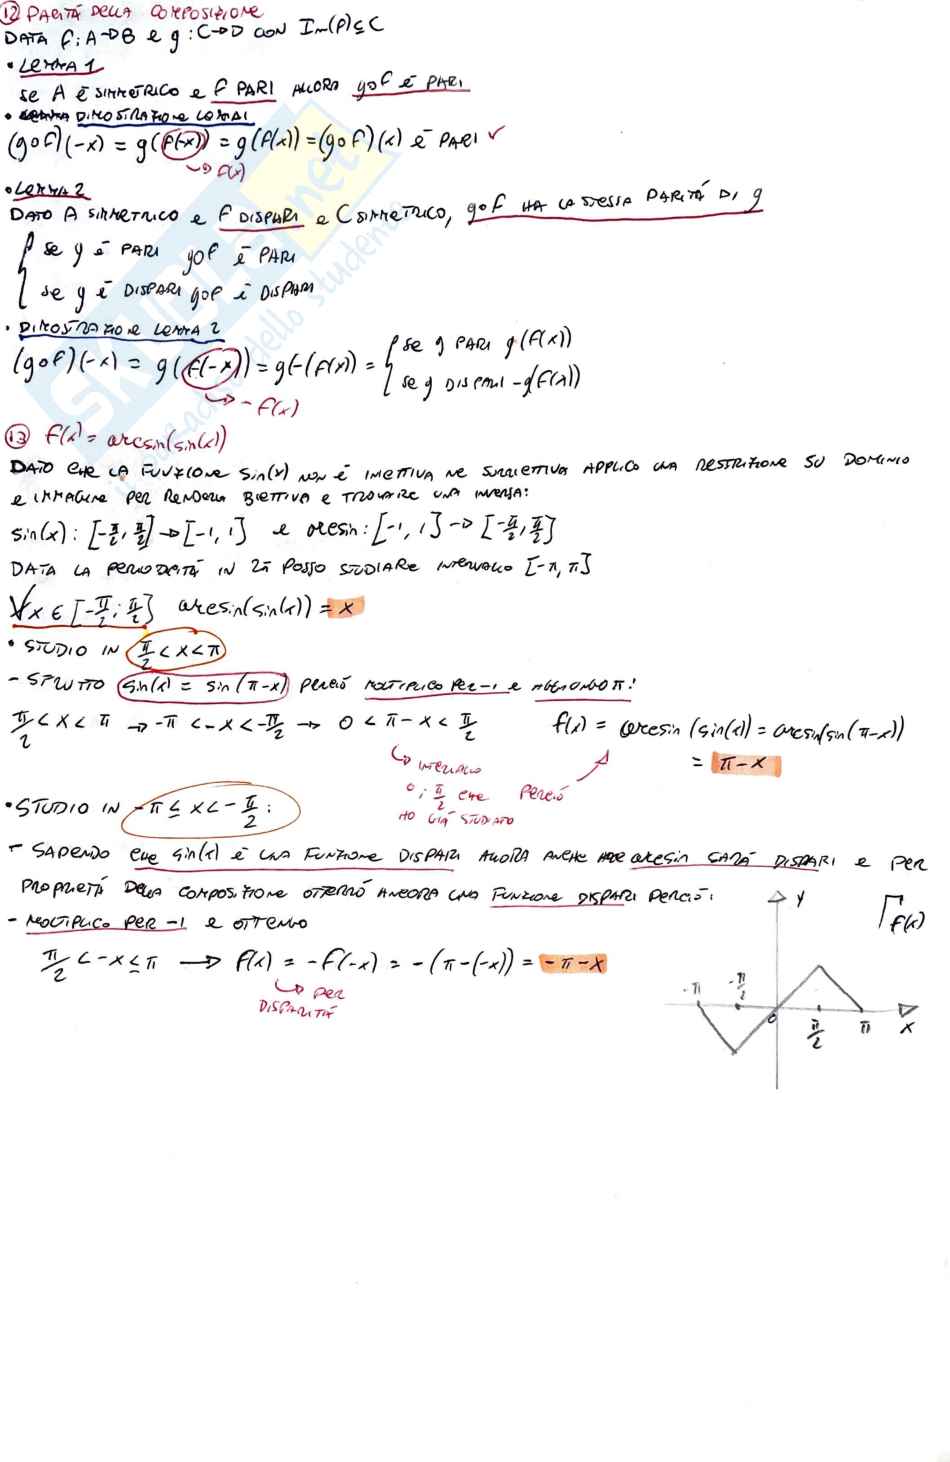 ⑫ PARITÁ DELLA COMPOSIZIONE
DATA f: A→B e g: C→D CON Im(f)⊆C
• LEMMA 1
se A É SIMMETRICO e f PARI ALLORA gof É PARI
• DIMOSTRAZIONE LEMMA 1
(gof)(-x) = g(f(-x)) = g(f(x)) = (gof)(x) É PARI ✓
↳ f(x)
• LEMMA 2
DATO A SIMMETRICO e f DISPARI e C SIMMETRICO, gof HA LA STESSA PARITÁ DI g
{ se g É PARI gof É PARI
se g É DISPARI gof É DISPARI
• DIMOSTRAZIONE LEMMA 2
(gof)(-x) = g(f(-x)) = g(-(f(x)) = { se g PARI g(f(x))
se g DISPARI -g(f(x))
↳ -f(x)
⑬ f(x) = arcsin(sin(x))
DATO CHE LA FUNZIONE sin(x) NON É INIETTIVA NE SURIETTIVA APPLICO UNA RESTRIZIONE SU DOMINIO
e IMMAGINE PER RENDERLA BIETTIVA e TROVARE UNA INVERSA:
sin(x): [-π/2, π/2] → [-1, 1] e arcsin: [-1, 1] → [-π/2, π/2]
DATA LA PERIODICITÁ IN 2π POSSO STUDIARE INTERVALLO [-π, π]
∀x ∈ [-π/2; π/2] arcsin(sin(x)) = x
• STUDIO IN π/2 < x < π
- SFRUTTO sin(x) = sin(π-x) PERCIÓ MOLTIPLICO PER -1 e AGGIUNGO π:
π/2 < x < π → -π < -x < -π/2 → 0 < π-x < π/2 f(x) = arcsin(sin(x)) = arcsin(sin(π-x))
= π-x
↳ INTERVALLO
0; π/2 CHE PERCIÓ
HO GIÁ STUDIATO
• STUDIO IN -π ≤ x < -π/2:
- SAPENDO CHE sin(x) É UNA FUNZIONE DISPARI ALLORA ANCHE arcsin SARÁ DISPARI e PER
PROPRIETÁ DELLA COMPOSIZIONE OTTERRÓ ANCORA UNA FUNZIONE DISPARI PERCIÓ:
- MOLTIPLICO PER -1 e OTTENGO
π/2 < -x ≤ π → f(x) = -f(-x) = -(π-(-x)) = -π-x
↳ PER
DISPARITÁ
y
Γf(x)
-π -π/2 0 π/2 π x